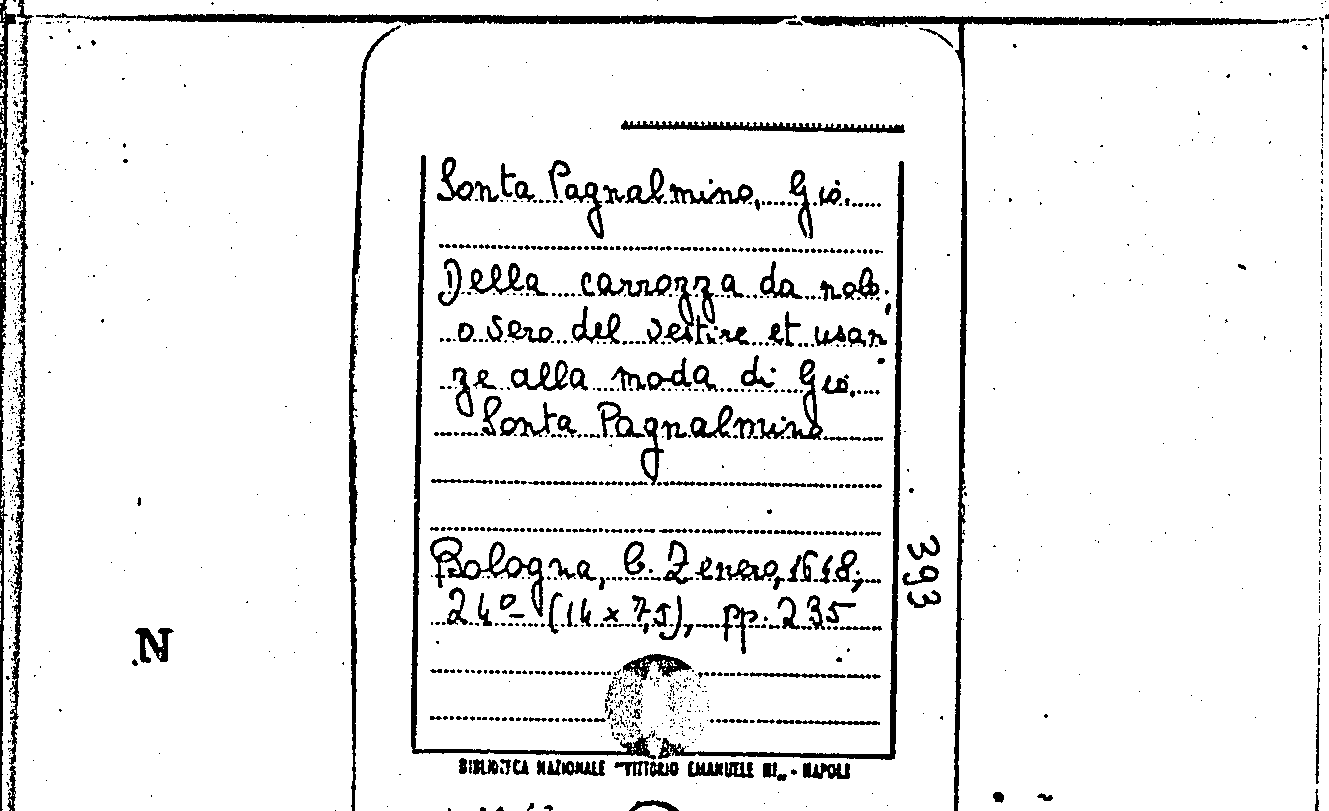 Sonta Pagnalmino, Gio.
Della carrozza da nolo;
o sero del vestire et usan
ze alla moda di Gio.
Sonta Pagnalmino
Bologna, C. Zenero, 1648;
24º (14 x 7,5), pp. 235
393
N
BIBLIOTECA NAZIONALE "VITTORIO EMANUELE III„ - NAPOLI